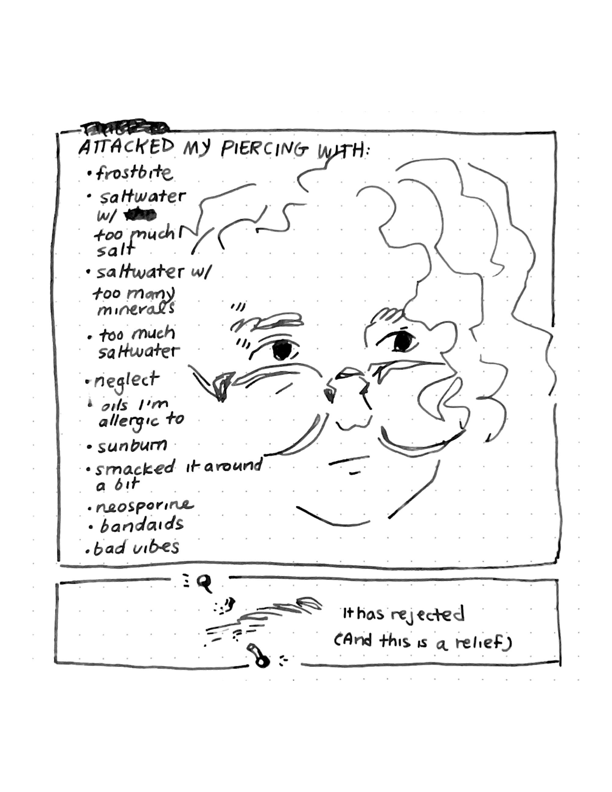 ATTACKED MY PIERCING WITH:
• frostbite
• saltwater
w/
too much
salt
• saltwater w/
too many
minerals
• too much
saltwater
• neglect
• oils I'm
allergic to
• sunburn
• smacked it around
a bit
• neosporine
• bandaids
• bad vibes
It has rejected
(And this is a relief)